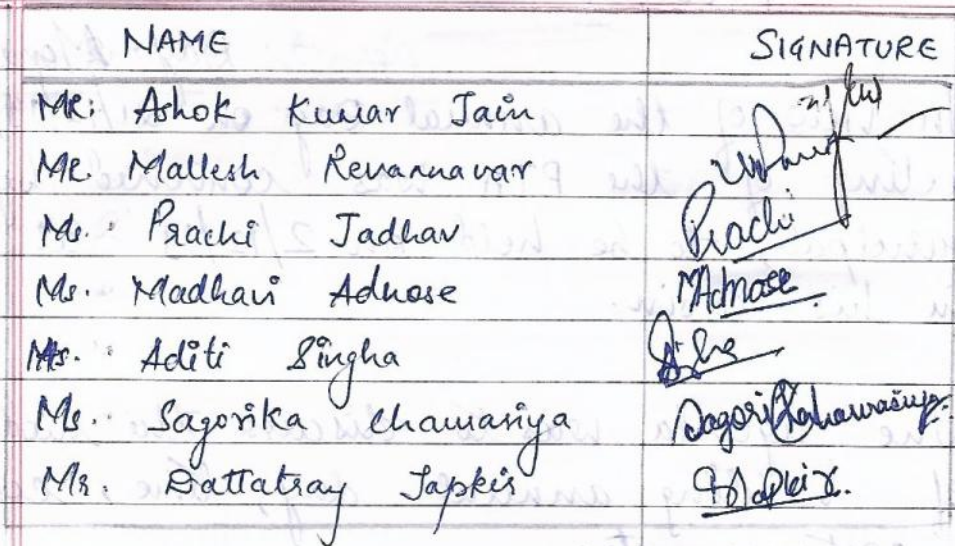 NAME SIGNATURE
MR: Ashok Kumar Jain
MR. Mallesh Revannavar
Ms. Prachi Jadhav Prachi
Ms. Madhavi Adnose MAdnose
Ms. Aditi Singha
Ms. Sagorika Chawariya
Mr. Dattatray Japkir